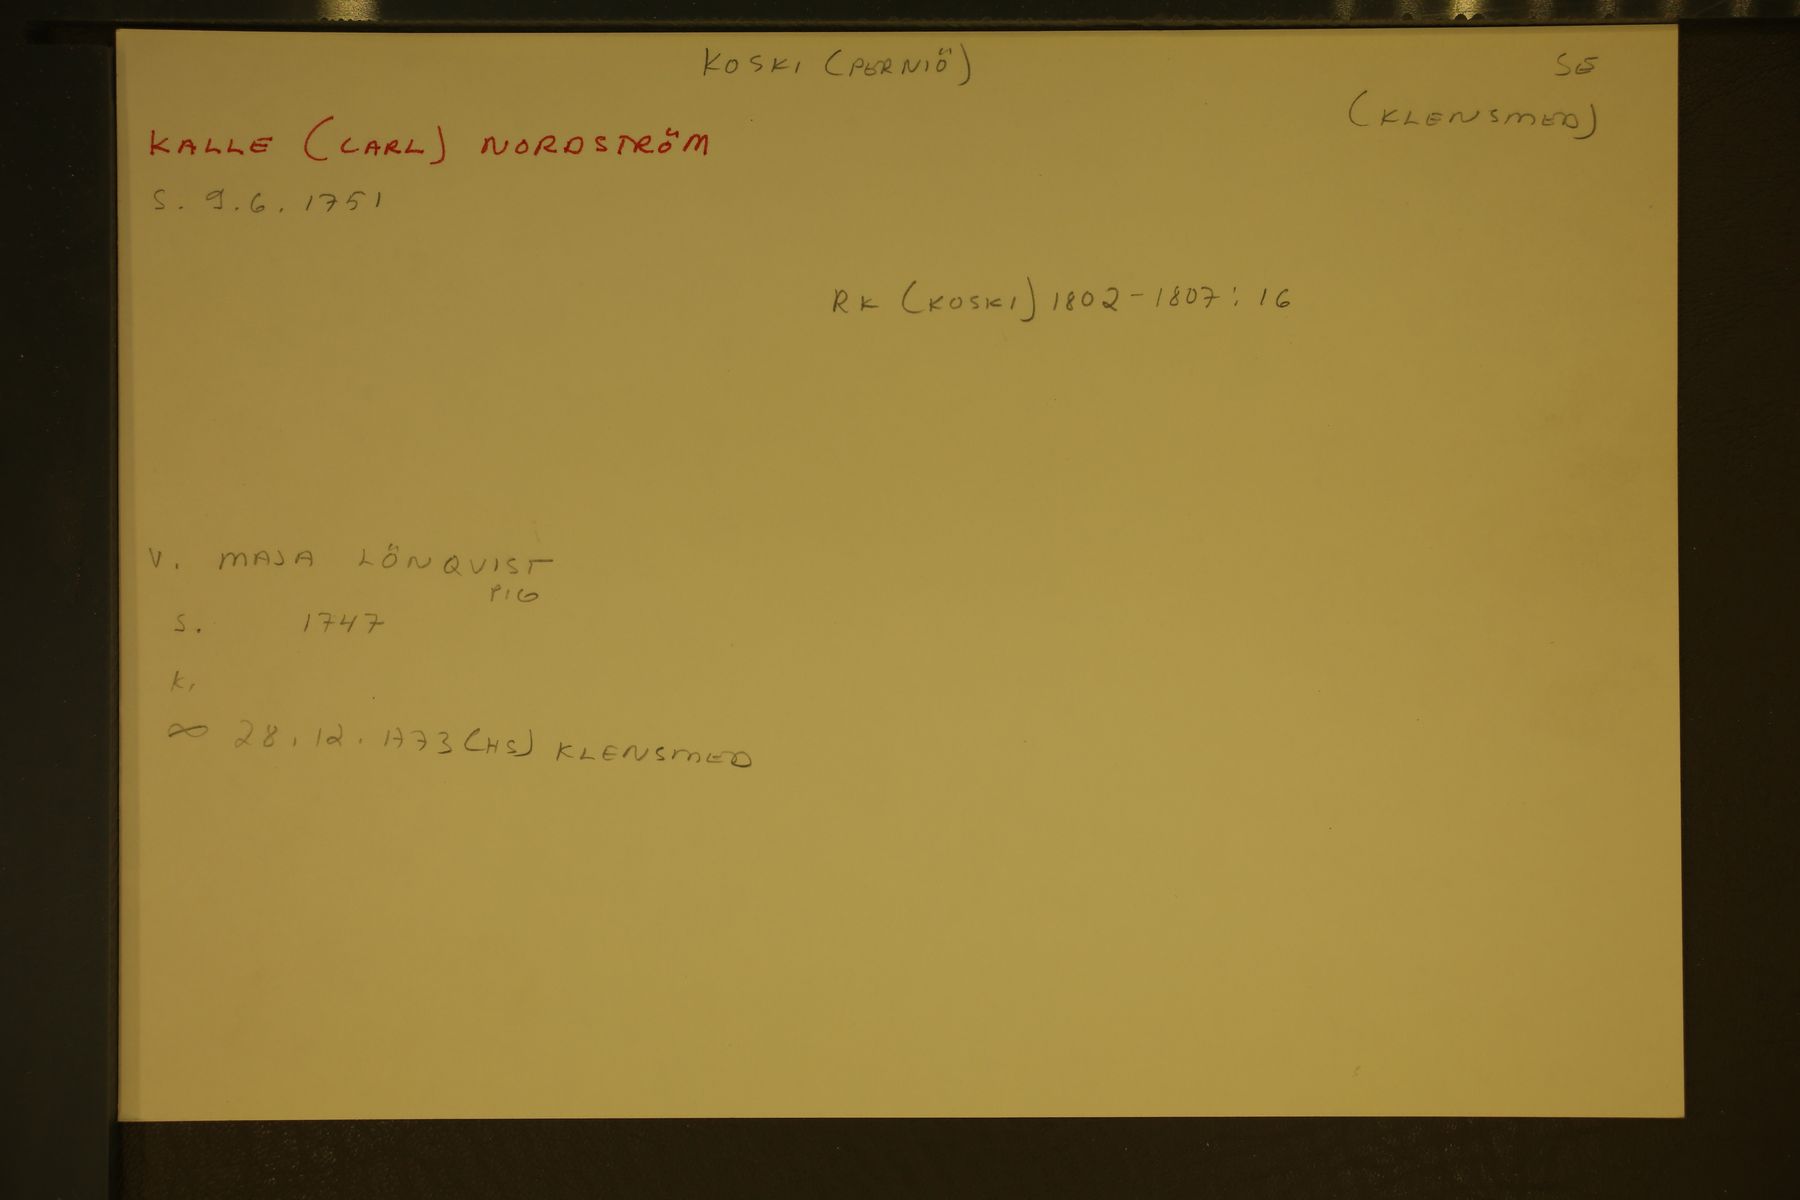 KOSKI (PERNIÖ)
SE
(KLENSMED)
KALLE (CARL) NORDSTRÖM
S. 9.6. 1751
RK (KOSKI) 1802-1807: 16
V. MAJA LÖNQVIST
PIG
S. 1747
K.
∞ 28.12.1773 (HS) KLENSMED